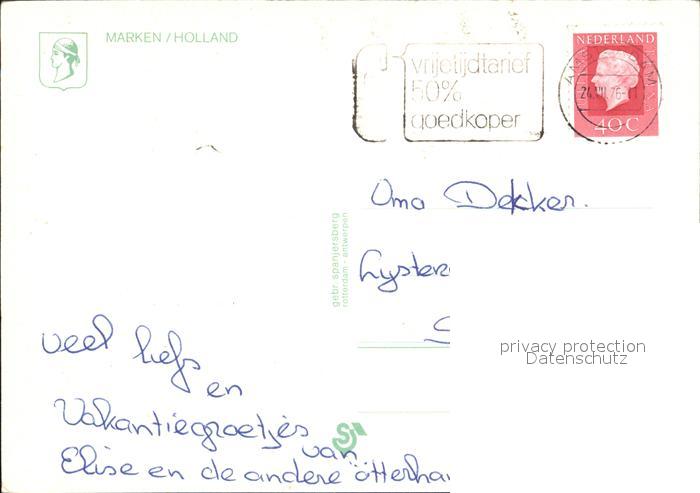 MARKEN / HOLLAND
vrijetijdtarief
50%
goedkoper
NEDERLAND
40 C
gebr. spanjersberg
rotterdam - antwerpen
Oma Dekker.
privacy protection
Datenschutz
veel liefs
en
Vakantiegroetjes
van
Elise en de andere